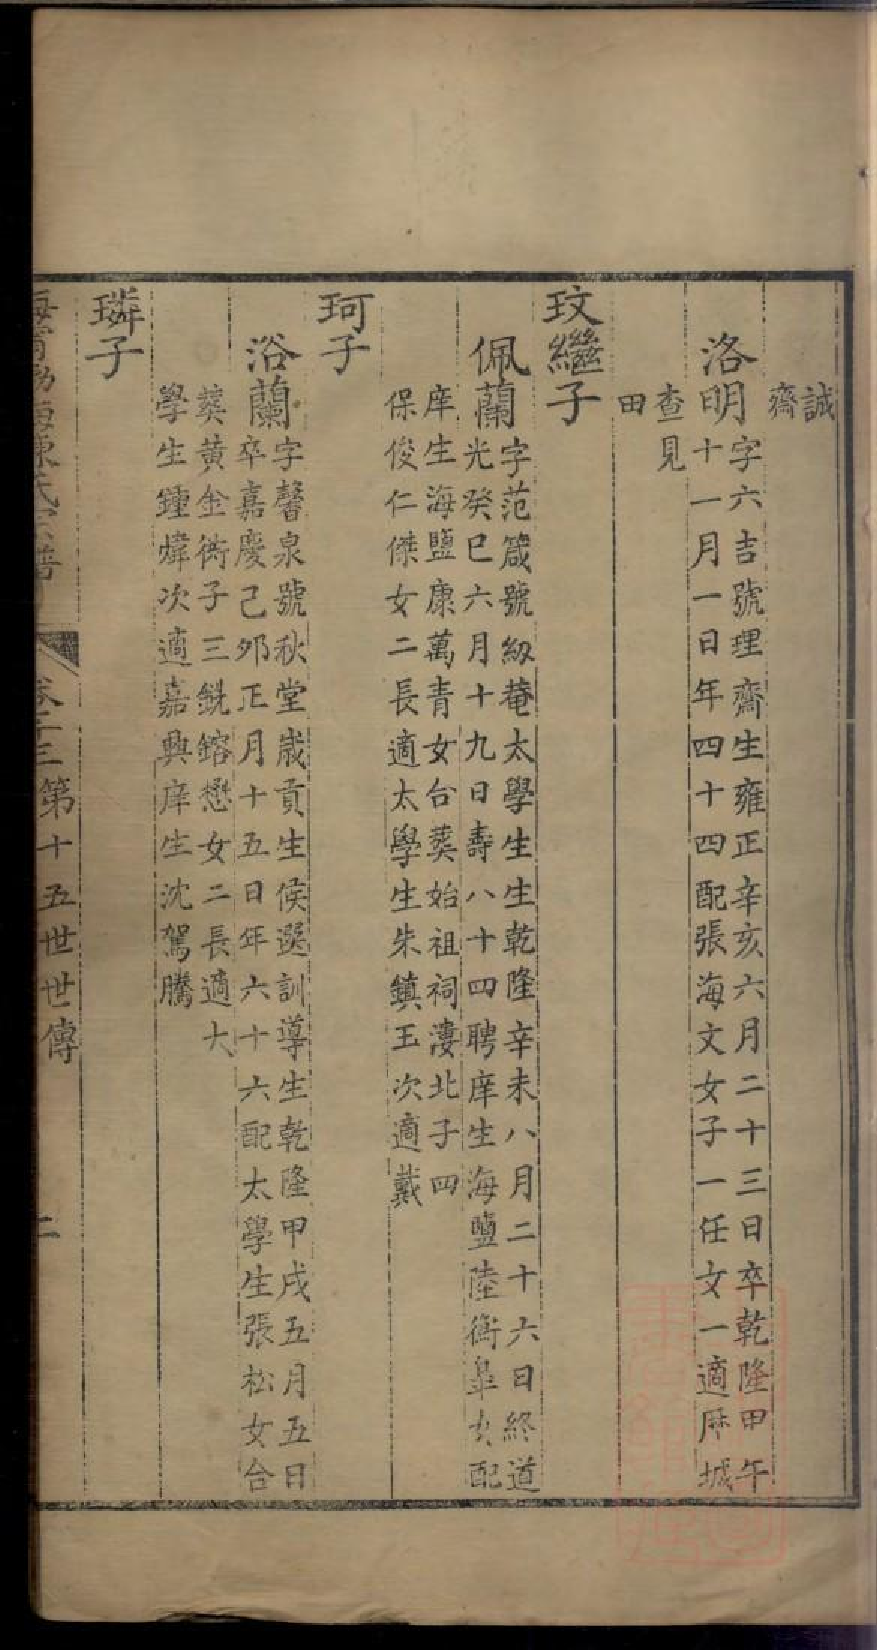 誠
齋
洛明
字六吉號理齋生雍正辛亥六月二十三日卒乾隆甲午
十一月一日年四十四配張海文女子一任女一適厯城
查見
田
玟繼子
佩蘭
字范箴號級菴太學生生乾隆辛未八月二十六日終道
光癸巳六月十九日壽八十四聘庠生海鹽陸衡臯女配
庠生海鹽康萬青女合葬始祖祠濅北子四
保俊仁傑女二長適太學生朱鎮玉次適戴
珂子
浴蘭
字馨泉號秋堂歲貢生候選訓導生乾隆甲戌五月五日
卒嘉慶己夘正月十五日年六十六配太學生張松女合
葬黃金衖子三銳鎔懋女二長適大
學生鍾煒次適嘉興庠生沈駕騰
璘子
海甯渤海陳氏宗譜
卷二十三第十五世世傳
二